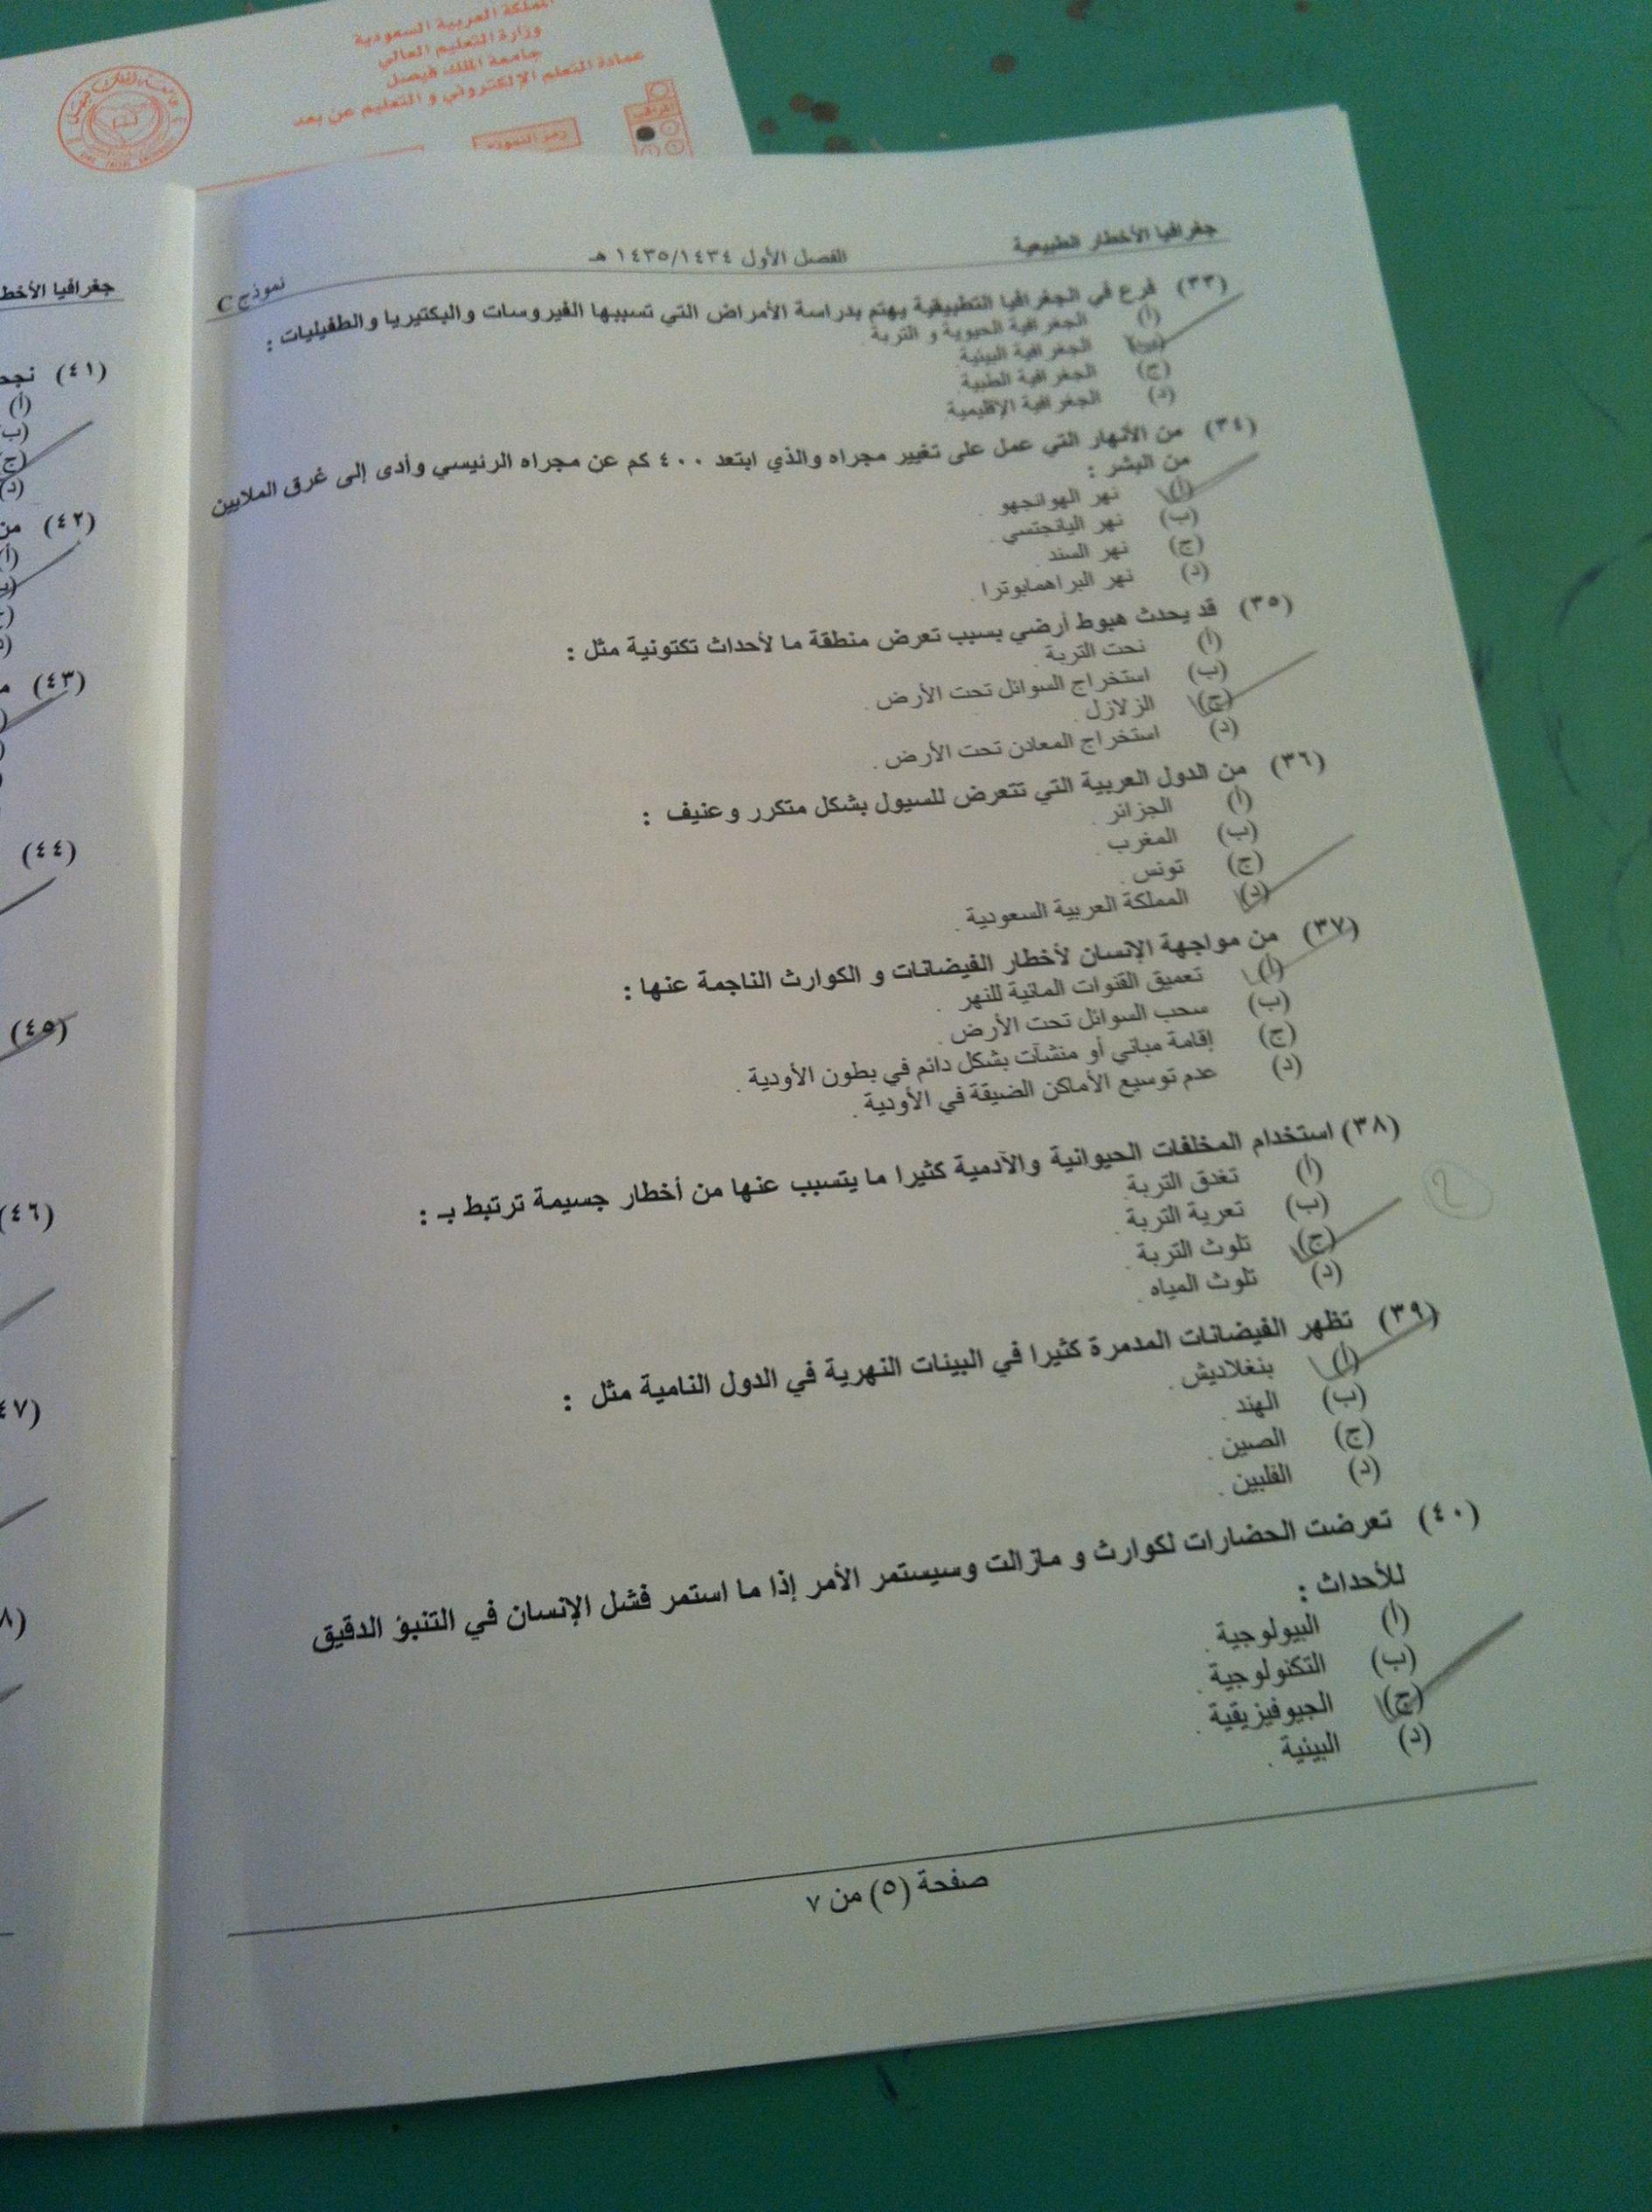 المملكة العربية السعودية
وزارة التعليم العالي
جامعة الملك فيصل
عمادة التعلم الإلكتروني و التعليم عن بعد
رمز النموذج
جغرافيا الأخطار الطبيعية
الفصل الأول ١٤٣٤/١٤٣٥ هـ
نموذج C
(٣٣) فرع في الجغرافيا التطبيقية يهتم بدراسة الأمراض التي تسببها الفيروسات والبكتيريا والطفيليات :
(أ) الجغرافية الحيوية و التربة .
(ب) الجغرافية البيئية .
(ج) الجغرافية الطبية .
(د) الجغرافية الإقليمية .
(٣٤) من الأنهار التي عمل على تغيير مجراه والذي ابتعد ٤٠٠ كم عن مجراه الرئيسي وأدى إلى غرق الملايين
من البشر :
(أ) نهر الهوانجهو .
(ب) نهر اليانجتسي .
(ج) نهر السند .
(د) نهر البراهمابوترا .
(٣٥) قد يحدث هبوط أرضي بسبب تعرض منطقة ما لأحداث تكتونية مثل :
(أ) نحت التربة .
(ب) استخراج السوائل تحت الأرض .
(ج) الزلازل .
(د) استخراج المعادن تحت الأرض .
(٣٦) من الدول العربية التي تتعرض للسيول بشكل متكرر وعنيف :
(أ) الجزائر .
(ب) المغرب .
(ج) تونس .
(د) المملكة العربية السعودية .
(٣٧) من مواجهة الإنسان لأخطار الفيضانات و الكوارث الناجمة عنها :
(أ) تعميق القنوات المائية للنهر .
(ب) سحب السوائل تحت الأرض .
(ج) إقامة مباني أو منشآت بشكل دائم في بطون الأودية .
(د) عدم توسيع الأماكن الضيقة في الأودية .
(٣٨) استخدام المخلفات الحيوانية والآدمية كثيرا ما يتسبب عنها من أخطار جسيمة ترتبط بـ :
(أ) تغدق التربة .
(ب) تعرية التربة .
(ج) تلوث التربة .
(د) تلوث المياه .
2
(٣٩) تظهر الفيضانات المدمرة كثيرا في البيئات النهرية في الدول النامية مثل :
(أ) بنغلاديش .
(ب) الهند .
(ج) الصين .
(د) الفلبين .
(٤٠) تعرضت الحضارات لكوارث و مازالت وسيستمر الأمر إذا ما استمر فشل الإنسان في التنبؤ الدقيق
للأحداث :
(أ) البيولوجية .
(ب) التكنولوجية .
(ج) الجيوفيزيقية .
(د) البيئية .
صفحة (٥) من ٧
جغرافيا
(٤١)
(أ)
(ب)
(ج)
(د)
(٤٢) من
(أ)
(٤٣)
(٤٤)
(٤٥)
(٤٦)